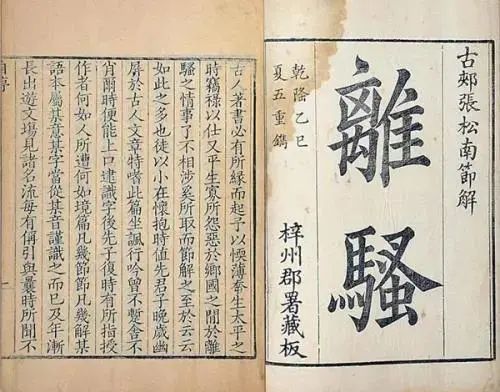 古郟張松南節解
離騷
乾隆乙巳
夏五重鐫
梓州郡署藏板
古人著書必有所緣而起予以愞薄奮生太平之
時竊祿以仕又平生寡所怨惡於鄉國之間於離
騷之情事了不相涉奚所取而節解之至於云云
如此之多也徒以小在懷抱時值先君子晚歲幽
屏於古人文章特嗜此篇坐諷行吟曾不暫舍不
肖爾時便能上口逮識字後先子復時有所指授
作者何如人所遭何如境篇凡幾節節凡幾解某
語本屬某意某字當從某音謹識之而已及年漸
長出遊文場見諸名流每有稱引與曩時所聞不